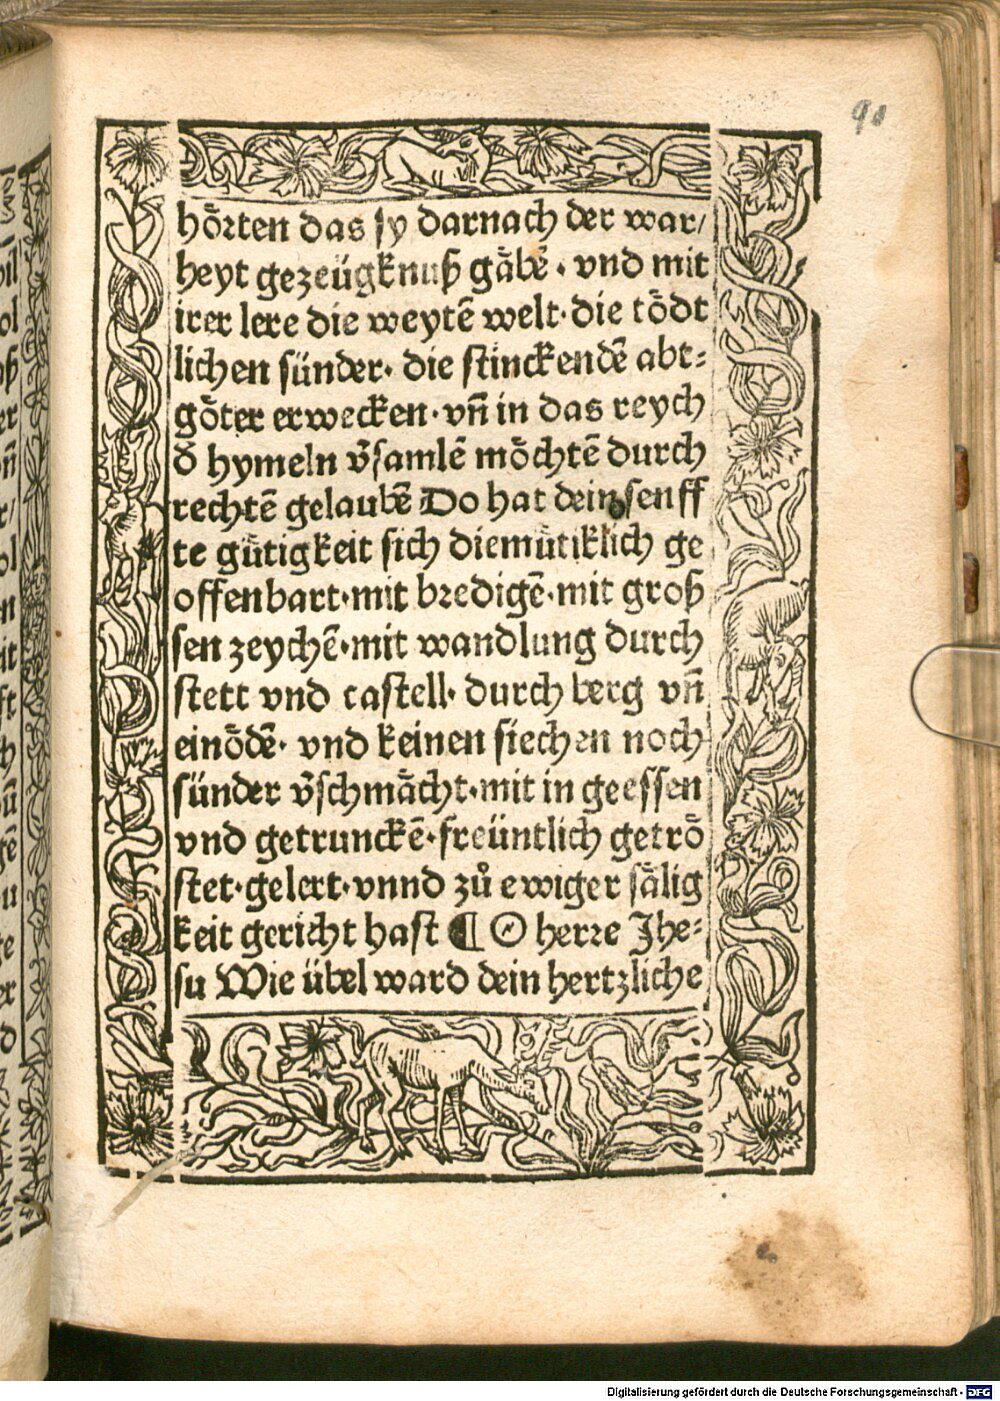 90
hoͤrten das sy darnach der war/
heyt gezeügknuß gaͤbē · vnd mit
irer lere die weytē welt · die toͤdt
lichen sünder · die stinckendē abt⸗
goͤter erwecken · vñ in das reych
d̄ hymeln v̄samlē moͤchtē durch
rechtē gelaubē Do hat dein senff
te guͤtigkeit sich diemuͤtiklich ge
offenbart · mit bredigē · mit groß
sen zeychē · mit wandlung durch
stett vnd castell · durch berg vñ
einoͤdē · vnd keinen siechen noch
sünder v̄schmaͤcht · mit in geessen
vnd getrunckē · freüntlich getroͤ
stet · gelert · vnnd zuͦ ewiger saͤlig
keit gericht hast ¶ O herre Jhe⸗
su Wie übel ward dein hertzliche
Digitalisierung gefördert durch die Deutsche Forschungsgemeinschaft - DFG